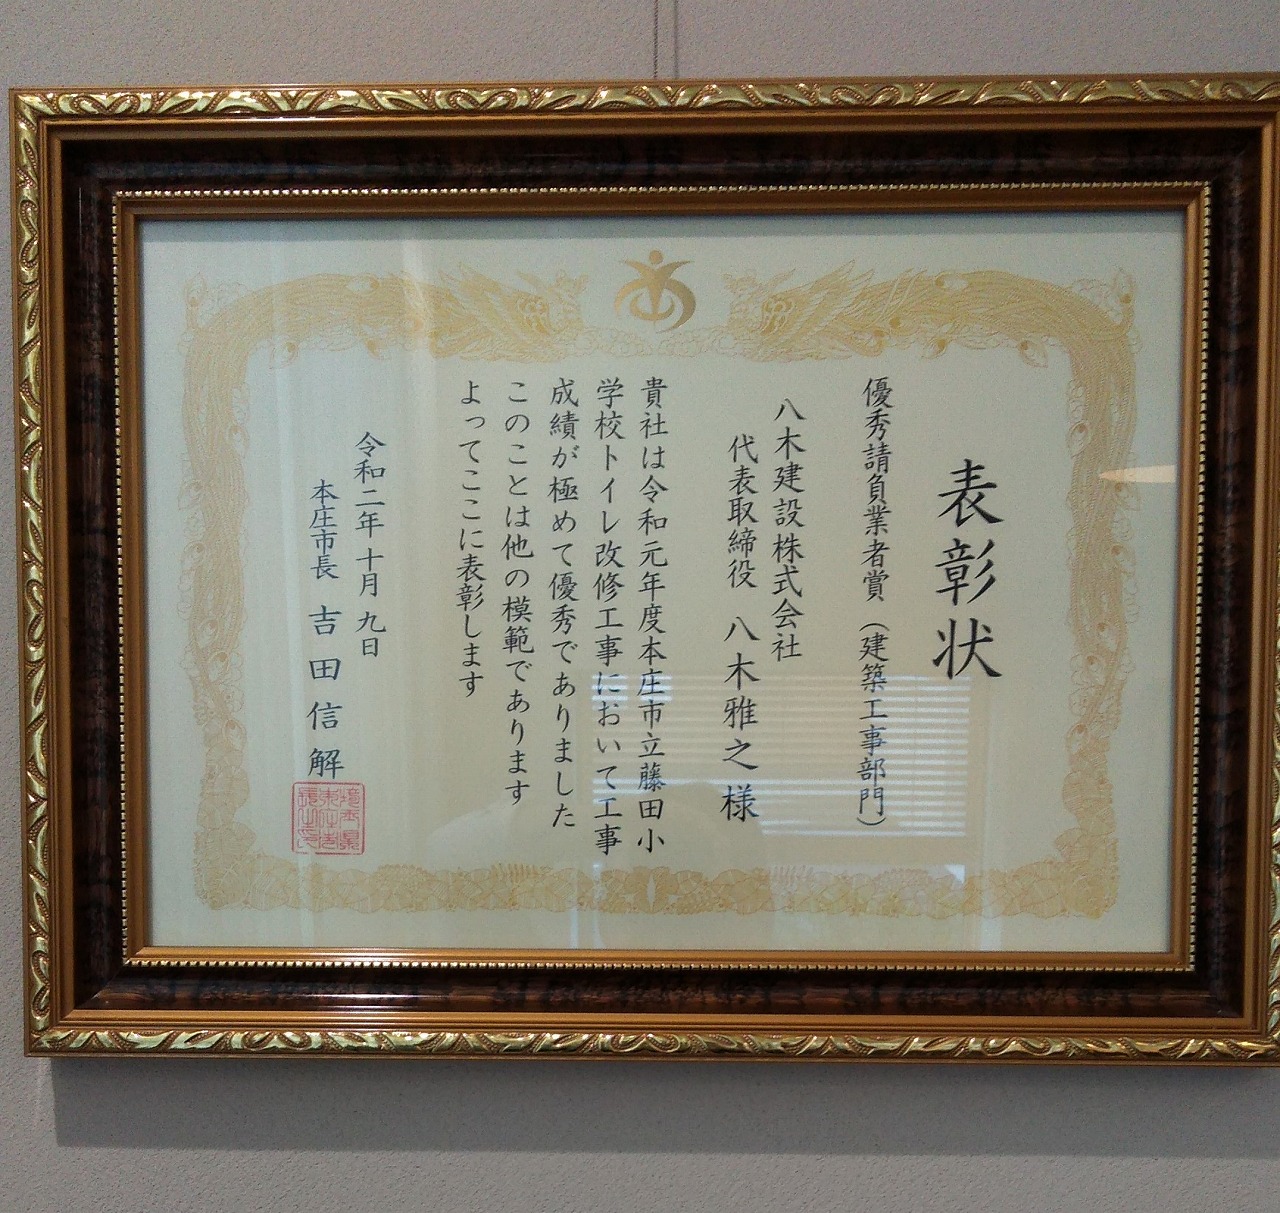 表彰状
優秀請負業者賞（建築工事部門）
八木建設株式会社
代表取締役 八木雅之 様
貴社は令和元年度本庄市立藤田小
学校トイレ改修工事において工事
成績が極めて優秀でありました
このことは他の模範であります
よってここに表彰します
令和二年十月九日
本庄市長 吉田信解